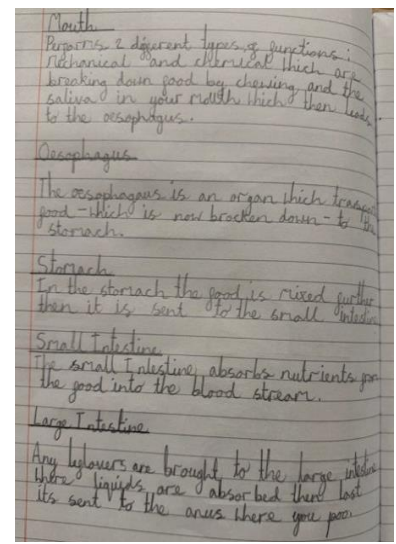 Mouth
Performs 2 different types of functions:
Mechanical and chemical which are
breaking down food by chewing and the
saliva in your mouth which then leads
to the oesophagus.
Oesophagus
The oesophagaus is an organ which transports
food - which is now brocken down - to the
stomach.
Stomach
In the stomach the food is mixed further
then it is sent to the small intestine
Small Intestine
The small Intestine absorbs nutrients from
the food into the blood stream.
Large Intestine
Any leftovers are brought to the large intestine
where liquids are absorbed then last
its sent to the anus where you poo.